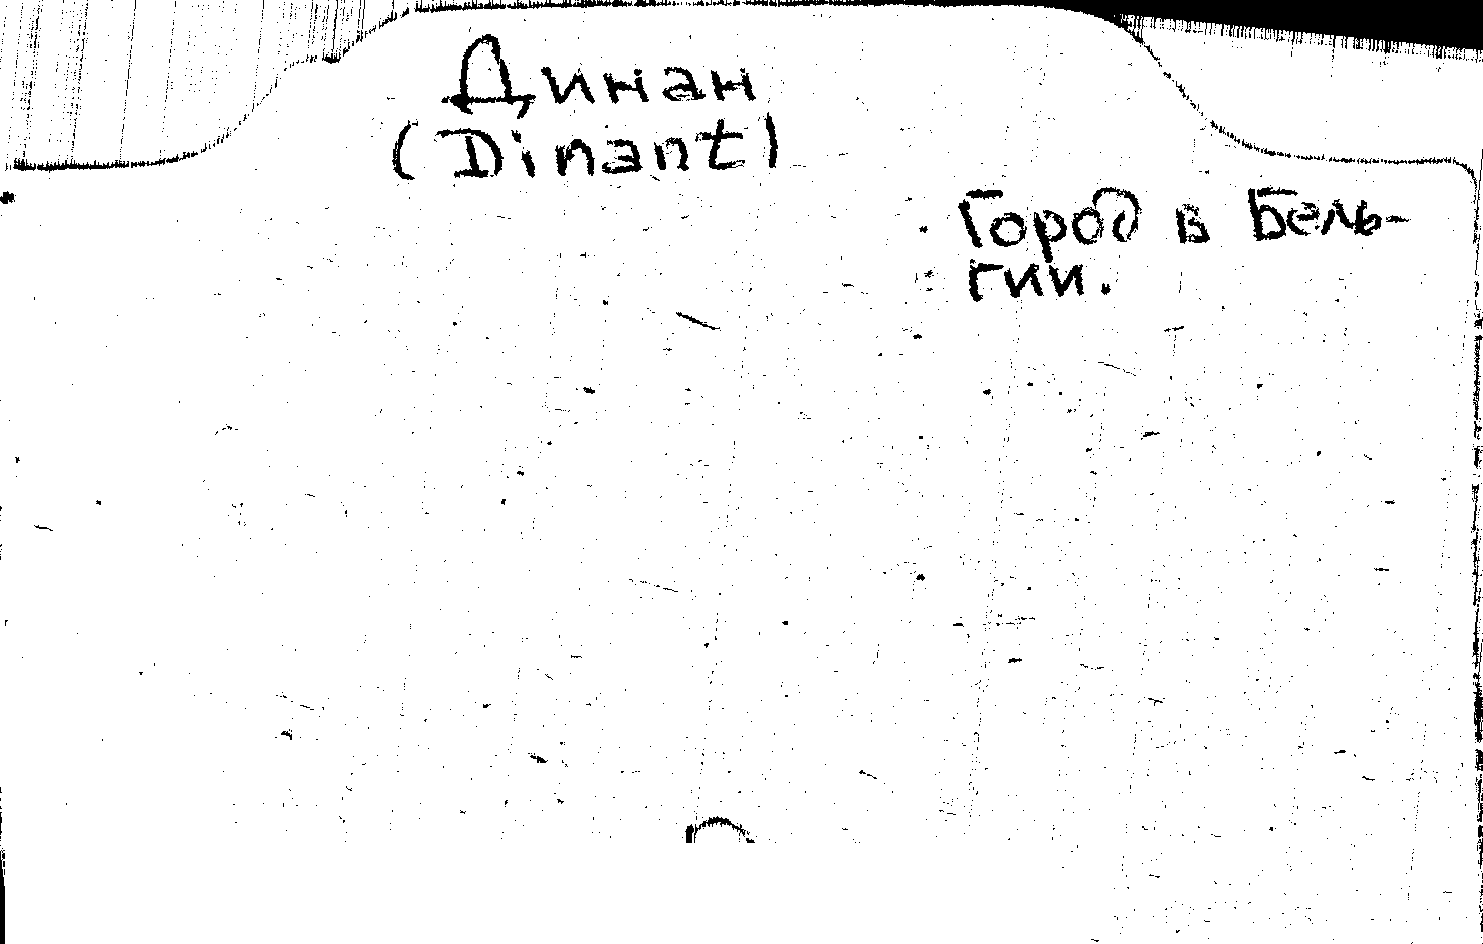 Динан
(Dinant)
Город в Бель-
гии.